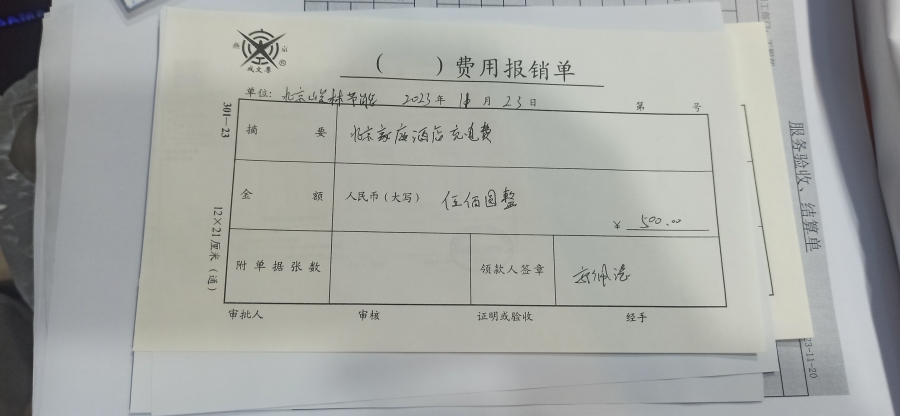 燕 京
成文厚
( ) 费用报销单
单位: 北京 林节能 2023 年 月 23 日 第 号
摘 要 北京 酒店充电费
金 额 人民币(大写) 伍佰圆整 ¥ 500.00
附单据张数 领款人签章
审批人 审核 证明或验收 经手
301—23
12×21厘米(通)
服务验收、结算单
23-11-20